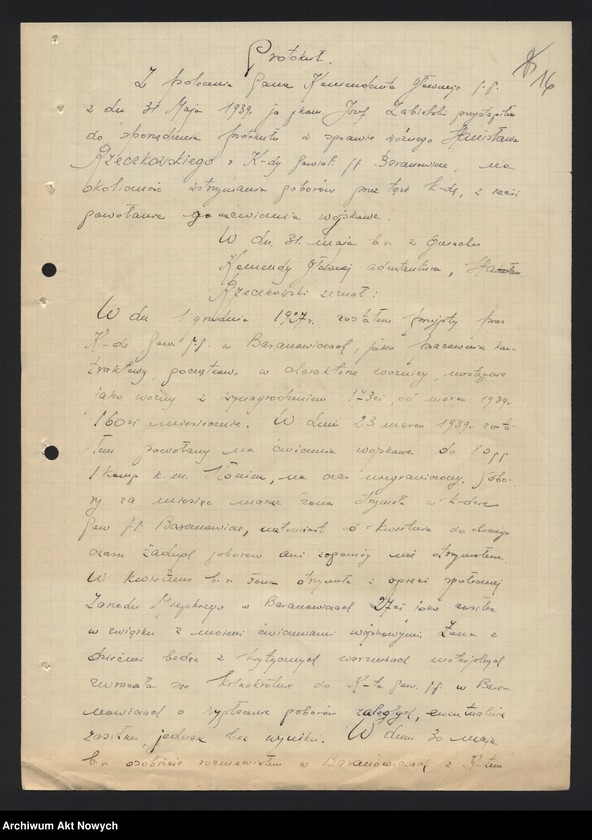 16
Protokół.
Z polecenia Pana Komendanta Głównego P.P.
z dn. 31 Maja 1939. ja kom. Józef Zabielski przystąpiłem
do sporządzenia protokułu w sprawie woźnego Stanisława
Rzeczkowskiego z K-dy Powiat. PP Baranowicze, na
okoliczność wstrzymania poborów przez tęże K-dę, z racji
powołania go na ćwiczenia wojskowe.
W dn. 31. maja b.r. z gmachu
Komendy Głównej adiutantura, Stanisław
Rzeczkowski zeznał:
W dn. 1 grudnia 1937r. zostałem przyjęty przez
K-dę Pow. P.P. w Baranowiczach, jako pracownik kon-
traktowy, początkowo w charakterze woźnicy, następnie
jako woźny z wynagrodzeniem od marca 1939.
160zł miesięcznie. W dniu 23 marca 1939r. zosta-
łem powołany na ćwiczenia wojskowe do 80 pp
1 komp. k.m. Słonim, na czas nieograniczony. Pobo-
ry za miesiąc marzec żona otrzymała w K-dzie
Pow. P.P. Baranowicze, natomiast od kwietnia do obecnego
czasu żadnych poborów ani zapomóg nie otrzymałem.
W kwietniu b.r. żona otrzymała z opieki społecznej
Zarządu Miejskiego w Baranowiczach 27zł jako zasiłek
w związku z moimi ćwiczeniami wojskowymi. Żona z
dziećmi będąc w krytycznych warunkach materjalnych
zwracała się kilkakrotnie do K-ta Pow. P.P. w Bara-
nowiczach o wypłacenie poborów zaległych, ewentualnie
zasiłku, jednak bez wyniku. W dniu 30 maja
b.r. osobiście rozmawiałem w Baranowiczach z K-tem
Archiwum Akt Nowych